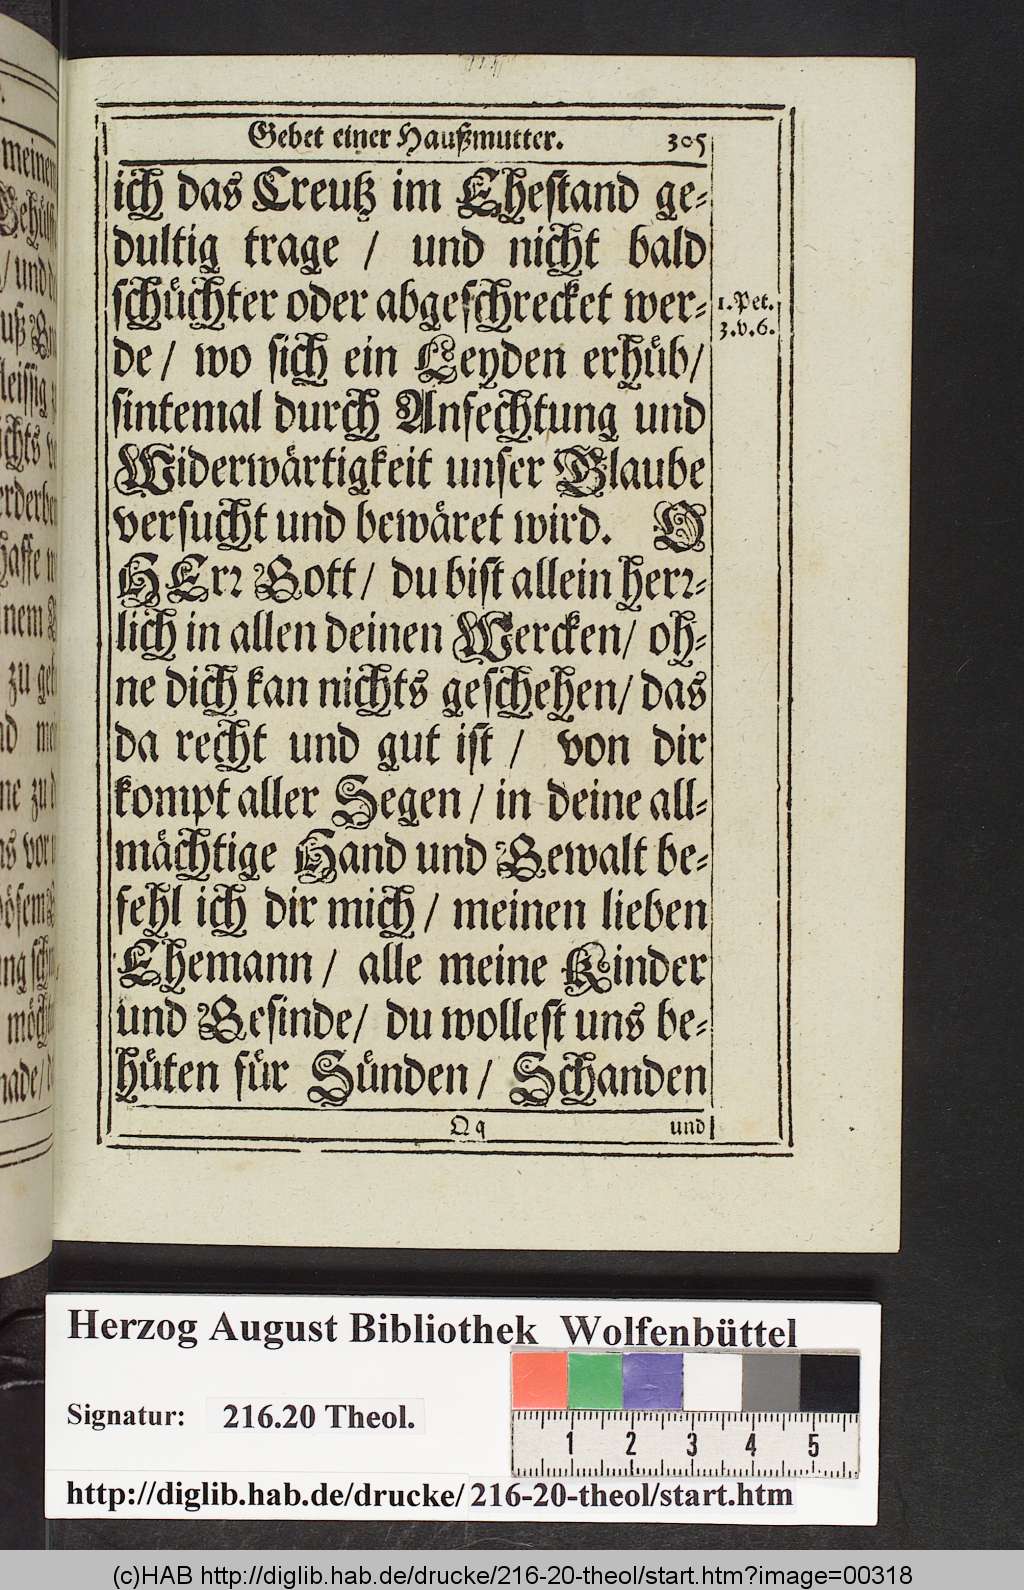 Gebet einer Haußmutter. 305
ich das Creutz im Ehestand ge-
dultig trage / und nicht bald
schüchter oder abgeschrecket wer-
de / wo sich ein Leyden erhüb /
sintemal durch Anfechtung und
Widerwärtigkeit unser Glaube
versucht und bewäret wird. O
HErr Gott / du bist allein herr-
lich in allen deinen Wercken / oh-
ne dich kan nichts geschehen / das
da recht und gut ist / von dir
kompt aller Segen / in deine all-
mächtige Hand und Gewalt be-
fehl ich dir mich / meinen lieben
Ehemann / alle meine Kinder
und Gesinde / du wollest uns be-
hüten für Sünden / Schanden
Qq und
1. Pet.
3. v. 6.
meinem
/ und
leissig
ichts
zu
nd
ne zu
as vor
ade /
Herzog August Bibliothek Wolfenbüttel
Signatur: 216.20 Theol.
1 2 3 4 5
http://diglib.hab.de/drucke/216-20-theol/start.htm
(c)HAB http://diglib.hab.de/drucke/216-20-theol/start.htm?image=00318